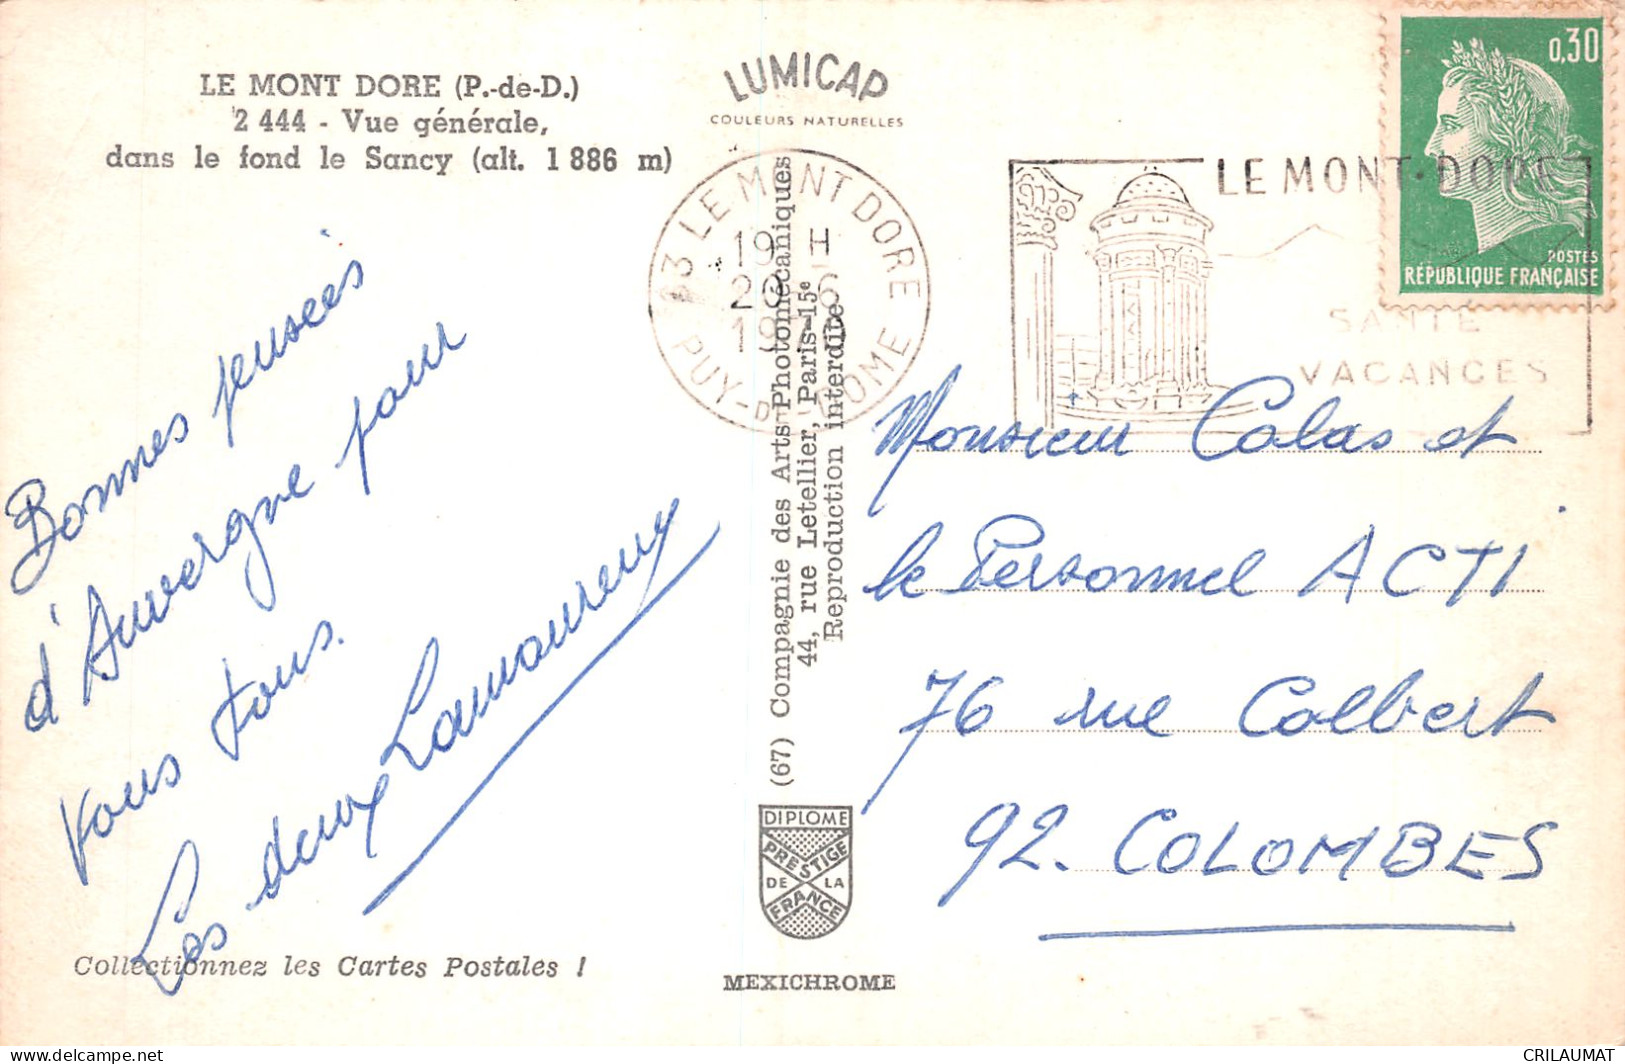 LE MONT DORE (P.-de-D.)
2 444 - Vue générale,
dans le fond le Sancy (alt. 1 886 m)
Bonnes pensées
d'Auvergne pour
vous tous.
Les deux Lamoureux
Collectionnez les Cartes Postales !
LUMICAP
COULEURS NATURELLES
63 LE MONT DORE
19 H
6
PUY-DE-DOME
(67) Compagnie des Arts Photomécaniques
44, rue Letellier, Paris-15e
Reproduction interdite
DIPLOME
PRESTIGE
DE LA
FRANCE
MEXICHROME
LE MONT-DORE
SANTE
VACANCES
0,30
POSTES
RÉPUBLIQUE FRANÇAISE
Monsieur Calas et
le Personnel ACTI
76 rue Colbert
92. COLOMBES
CRILAUMAT